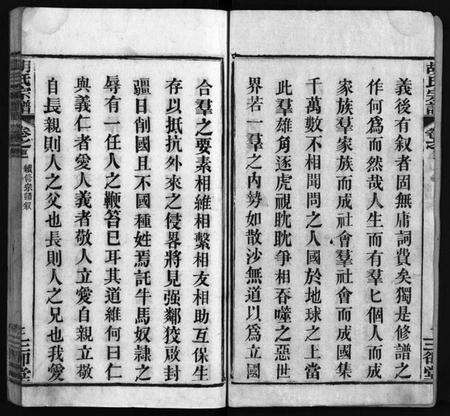 胡氏宗譜
卷之首
三治堂
義後有叙者固無庸詞費矣獨是修譜之
作何爲而然哉人生而有羣匕個人而成
家族羣家族而成社會羣社會而成國集
千萬數不相聞問之人國於地球之上當
此羣雄角逐虎視眈眈爭相吞噬之惡世
界若一羣之內勢如散沙無道以爲立國
合羣之要素相維相繫相友相助互保生
存以抵抗外來之侵畧將見强鄰狡啟封
疆日削國且不國種姓焉託牛馬奴隸之
辱有一任人之鞭笞巳耳其道維何曰仁
與義仁者愛人義者敬人立愛自親立敬
自長親則人之父也長則人之兄也我愛
胡氏宗譜
卷之首
續修宗譜叙